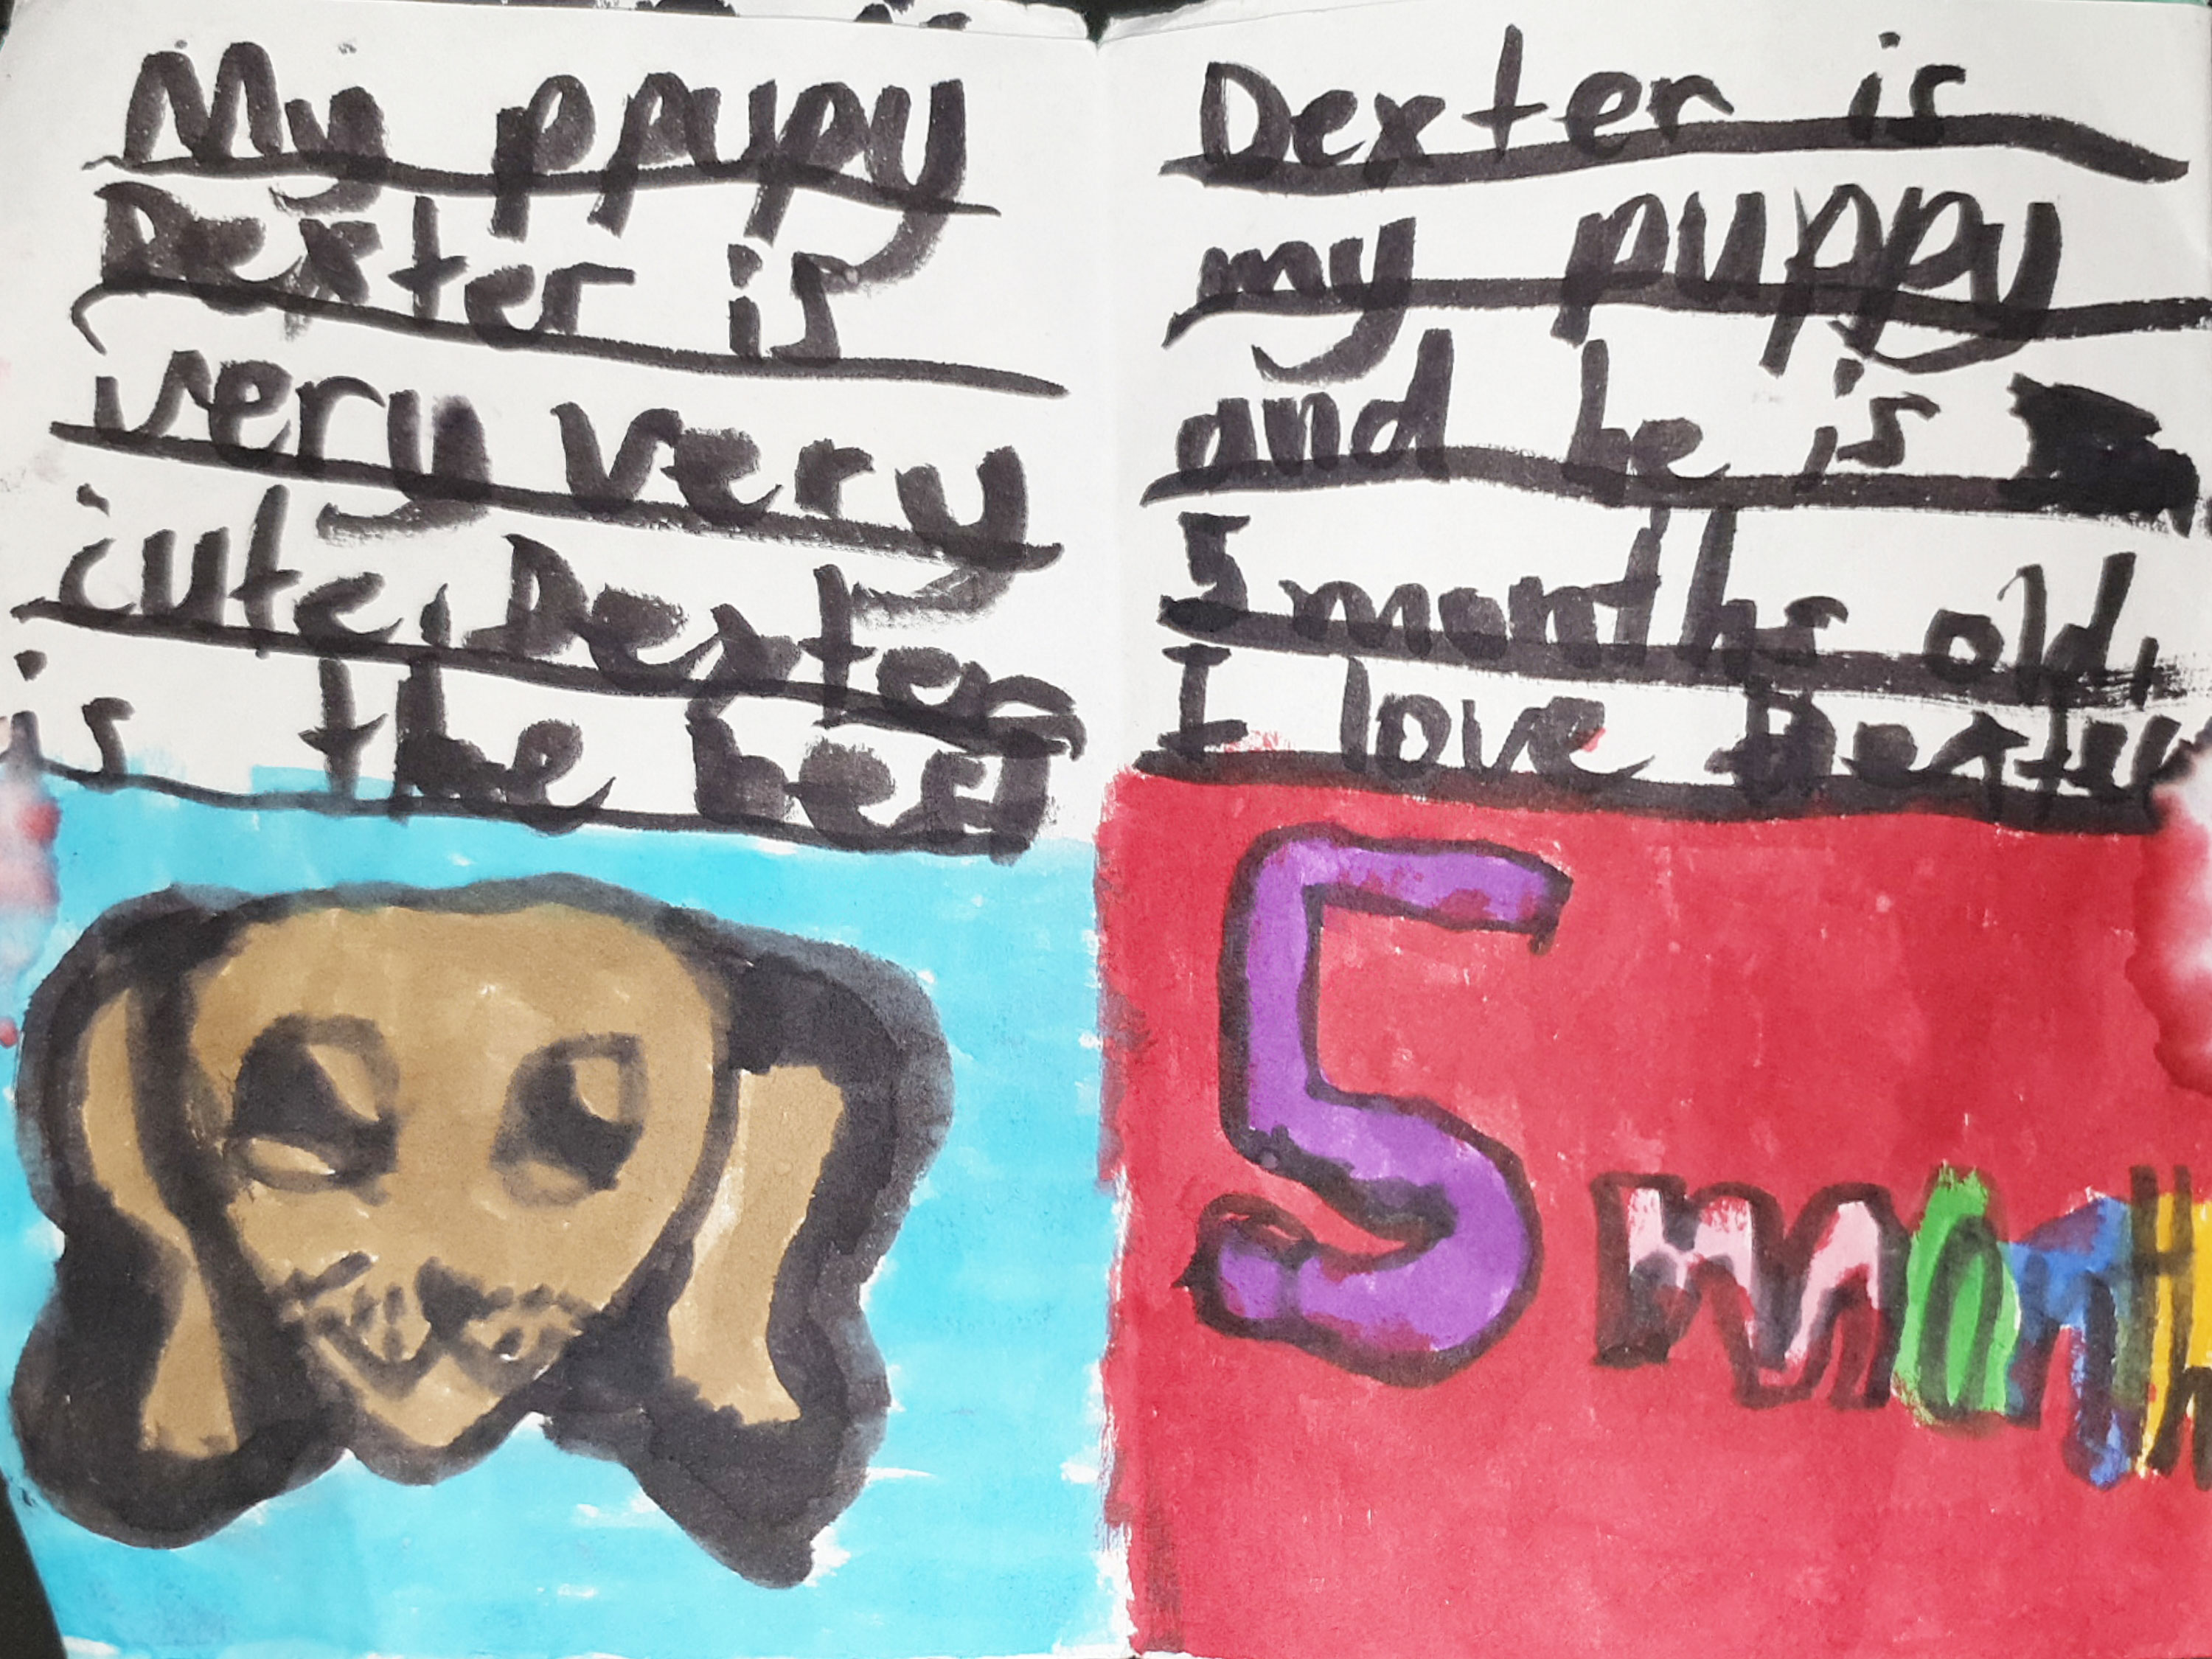 My ppupy
Dexter is
very very
cute. Dexter
is the best
Dexter is
my puppy
and he is
5 months old.
I love Dexter
5 month